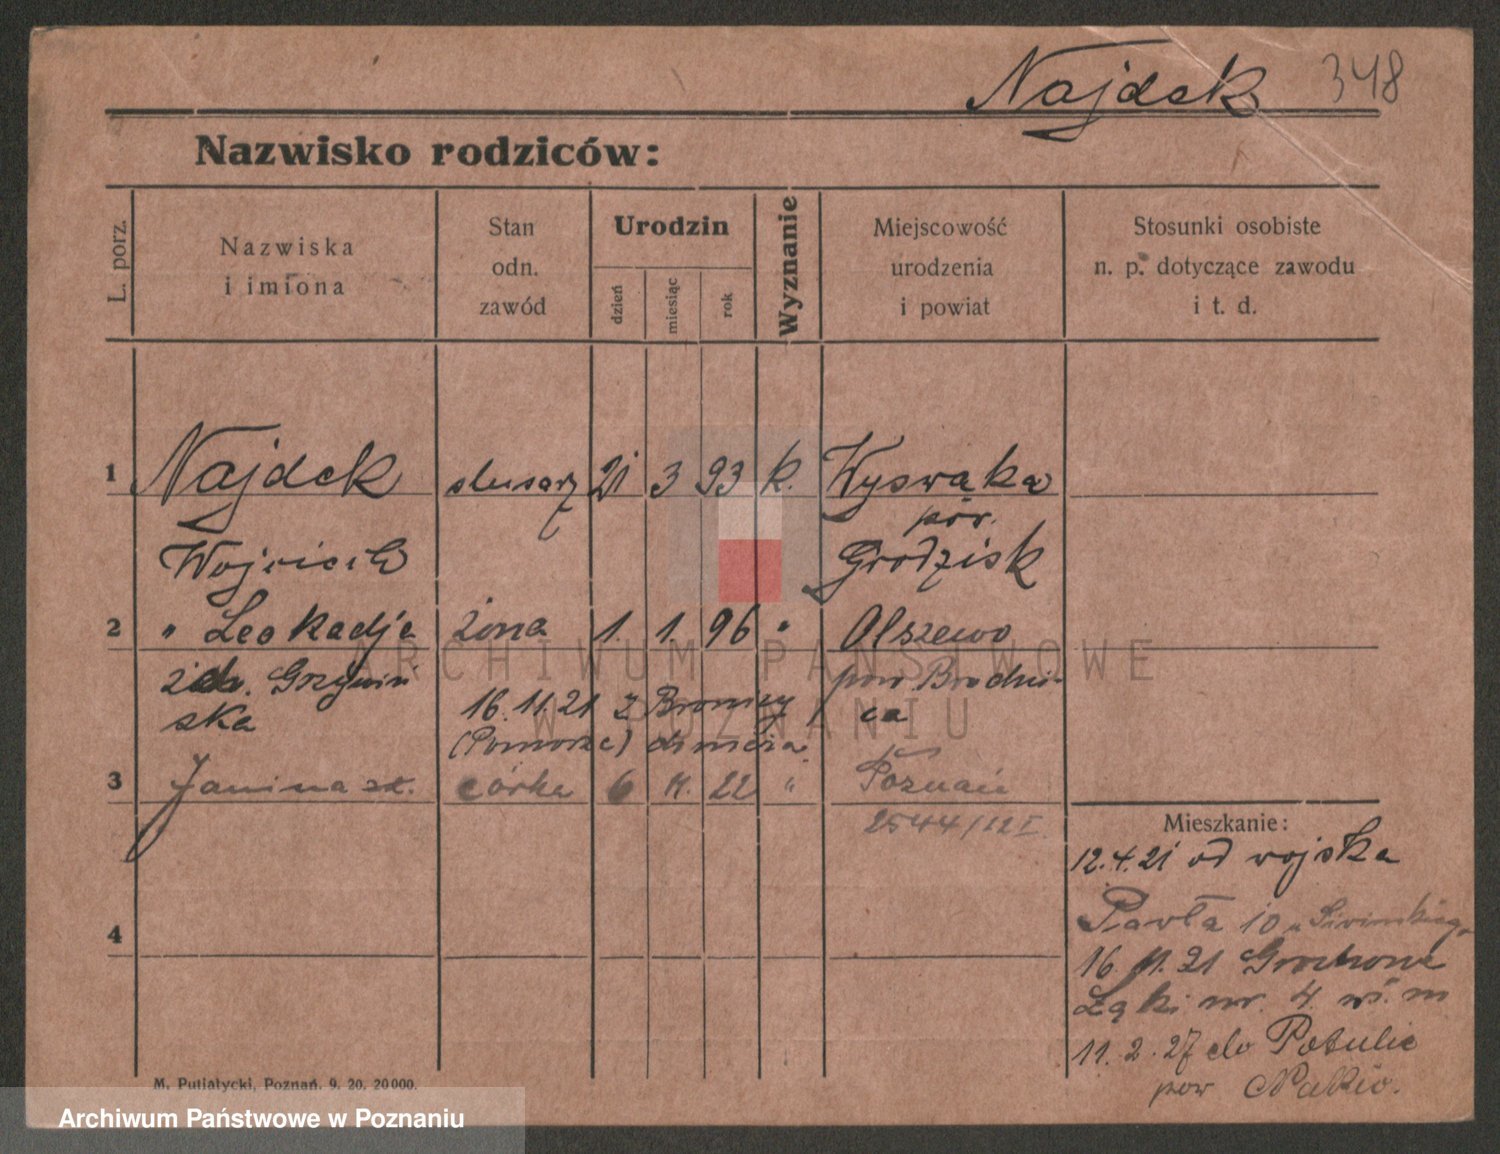 Najdek 348
Nazwisko rodziców:
L. porz.
Nazwiska
i imiona
Stan
odn.
zawód
Urodzin
dzień
miesiąc
rok
Wyznanie
Miejscowość
urodzenia
i powiat
Stosunki osobiste
n. p. dotyczące zawodu
i t. d.
1 Najdek slusarz 21 3 93 k. Wyswaka
pow.
Wojciech Grodzisk
2 " Leokadja żona 1. 1. 96 " Olszewo
Grzywiń pow. Brodni-
ska 16.11.21 z ca
(Pomorze)
3 Janina córka 6 22 " Poznań
2544/22 I.
4
Mieszkanie:
12.4.21 od wojska
Pawła 10
16. 11. 21 Grochowe
Łąki nr. 4
11. 2. 27 do Potulic
pow Nakło.
M. Putiatycki, Poznań. 9. 20. 20000.
ARCHIWUM PAŃSTWOWE
W POZNANIU
Archiwum Państwowe w Poznaniu